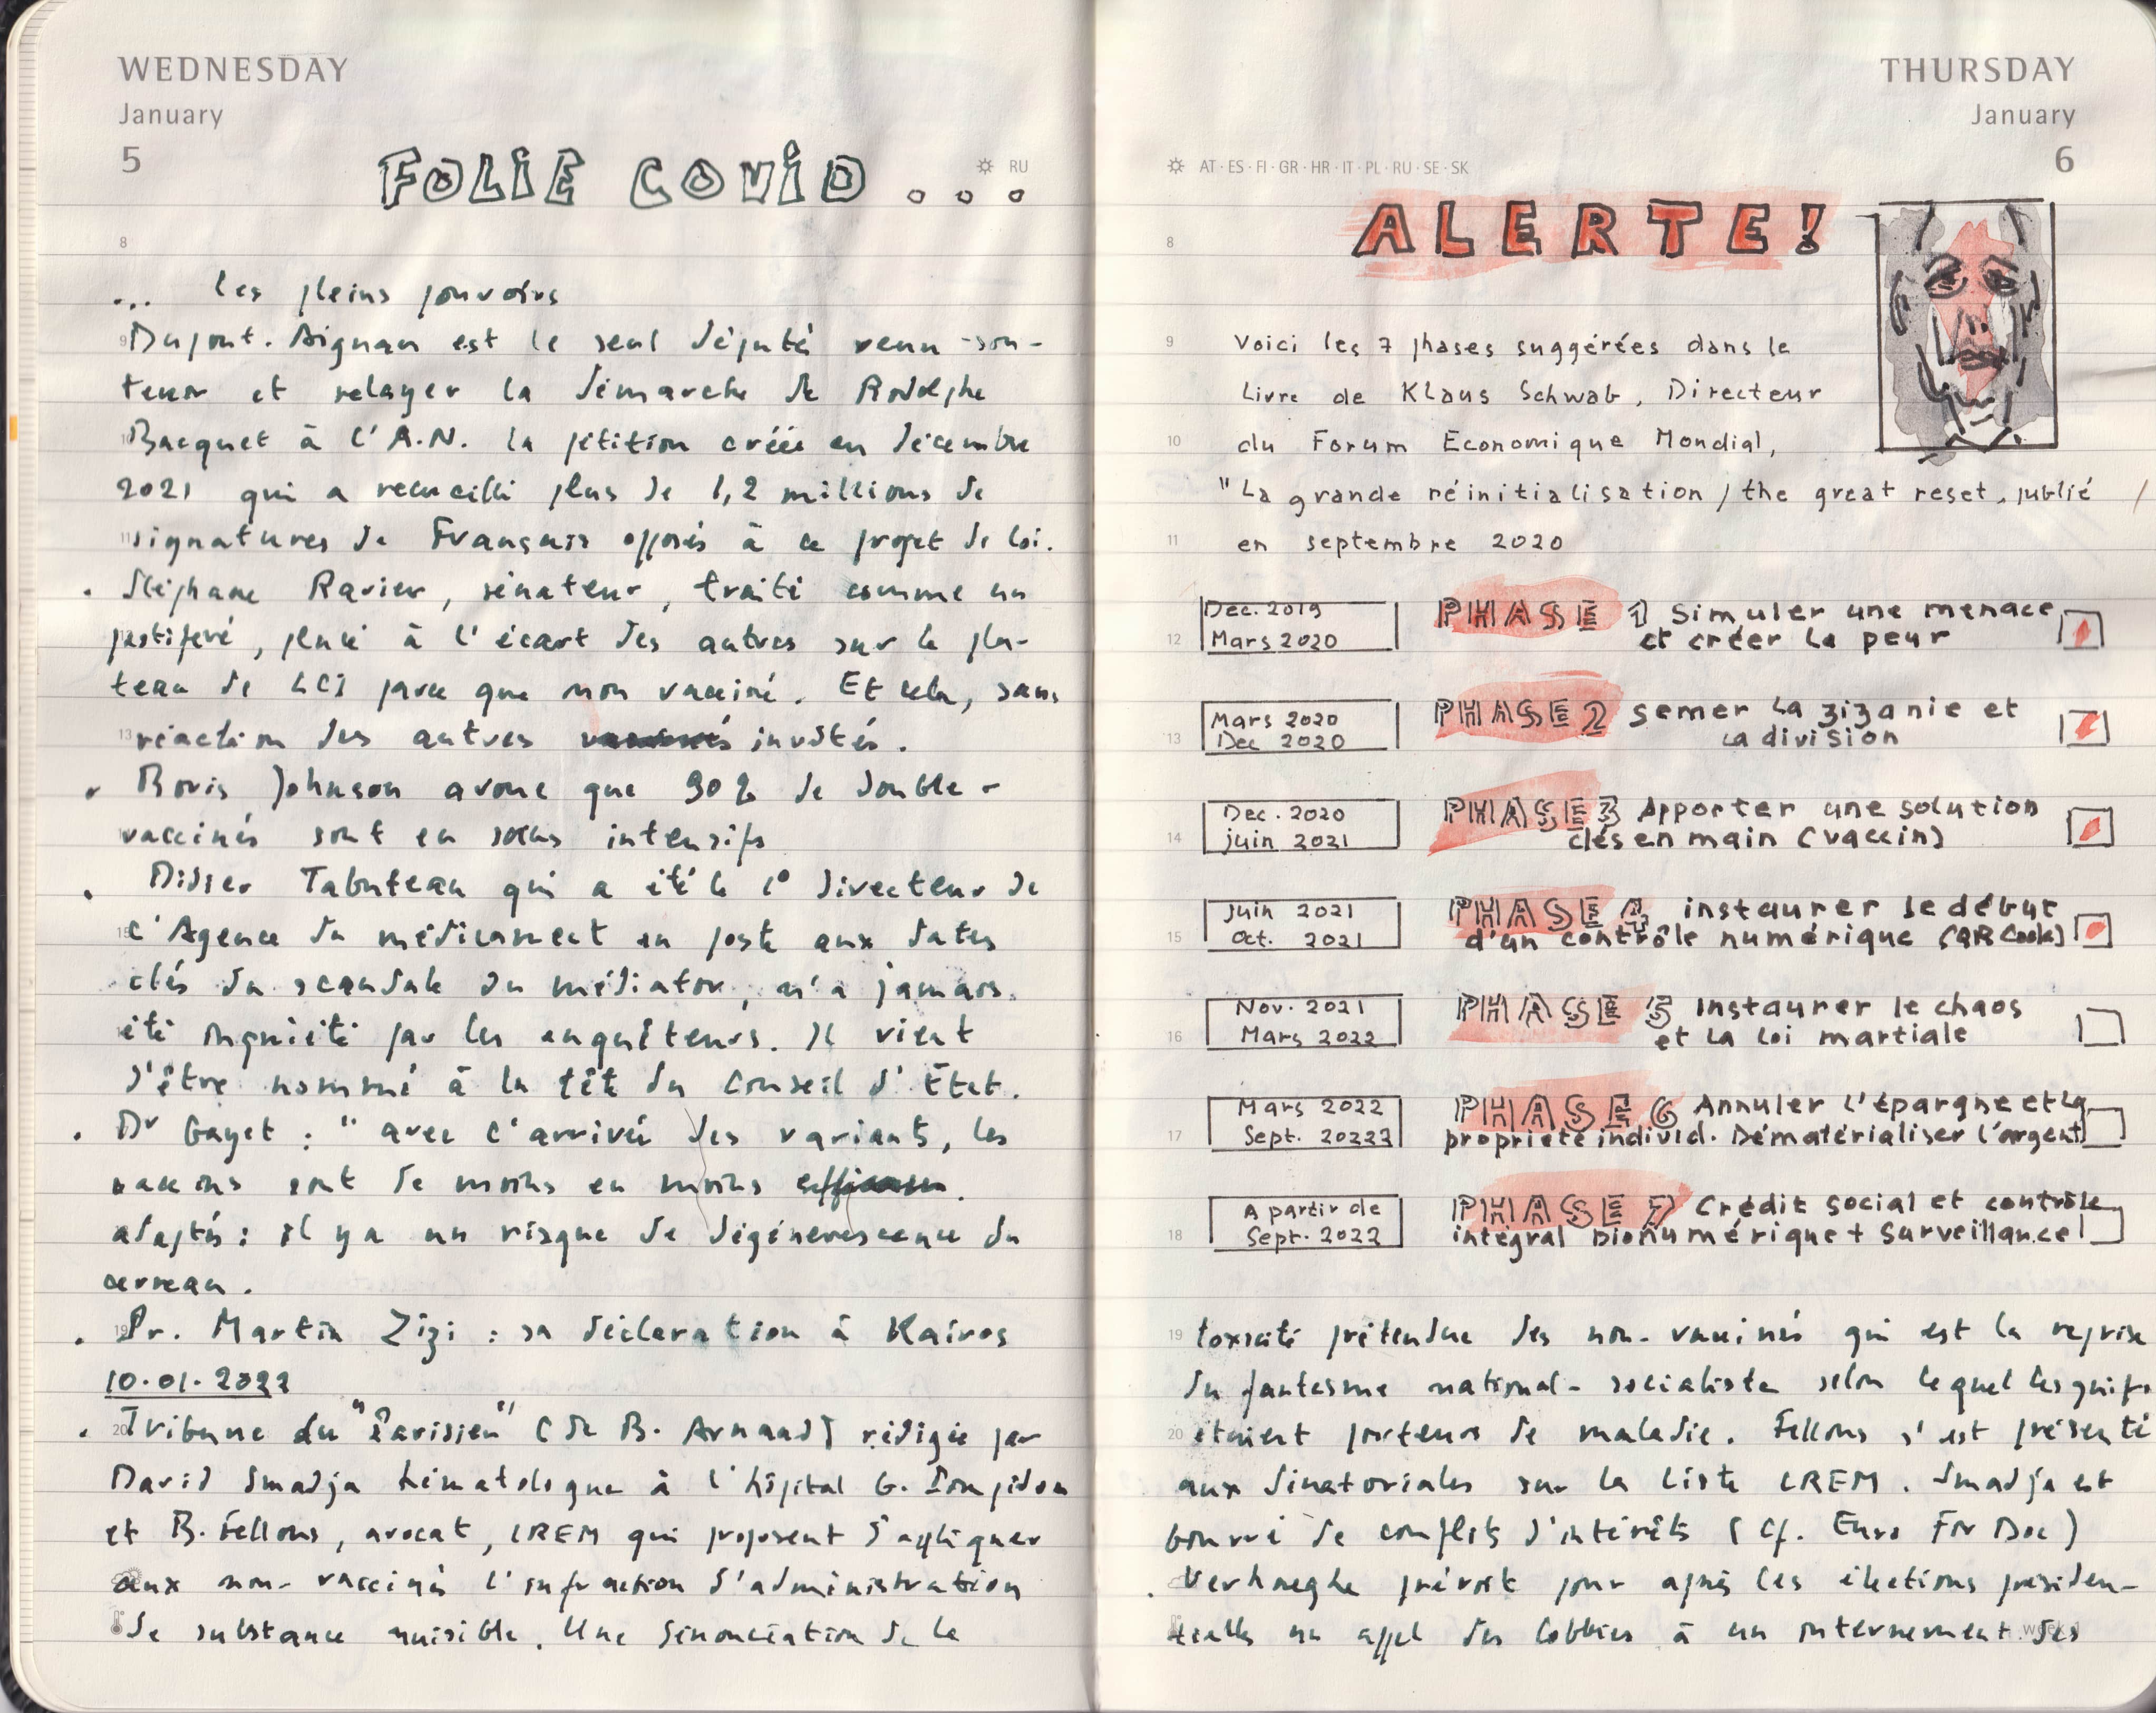 WEDNESDAY
January
5
RU
FOLIE COVID ...
8
... les pleins pouvoirs
9
Dupont-Aignan est le seul député venu sou-
tenir et relayer la démarche de Rodolphe
10
Bacquet à l'A.N. la pétition créée en décembre
2021 qui a recueilli plus de 1,2 millions de
11
signatures de Français opposés à ce projet de loi.
. Stéphane Ravier, sénateur, traité comme un
pestiféré, placé à l'écart des autres sur le pla-
teau de LCI parce que non vacciné. Et cela, sans
13
réaction des autres invités.
. Boris Johnson avoue que 90% de double-
vaccinés sont en soins intensifs
. Didier Tabuteau qui a été le 1° directeur de
15
l'Agence du médicament en poste aux dates
clés du scandale du médiator, n'a jamais
été inquiété par les enquêteurs. Il vient
d'être nommé à la tête du Conseil d'État.
. Dr Gayet : "avec l'arrivée des variants, les
vaccins sont de moins en moins
adaptés : il y a un risque de dégénérescence du
cerveau.
19
. Pr. Martin Zizi : sa déclaration à Kairos
10.01.2022
20
. Tribune du "Parisien" (de B. Arnault) rédigée par
David Smadja hématologue à l'hôpital G. Pompidou
et B. Fellous, avocat, LREM qui proposent d'appliquer
aux non-vaccinés l'infraction d'administration
de substance nuisible. Une dénonciation de la
THURSDAY
January
6
AT · ES · FI · GR · HR · IT · PL · RU · SE · SK
ALERTE!
8
9
Voici les 7 phases suggérées dans le
Livre de Klaus Schwab, Directeur
10
du Forum Economique Mondial,
"La grande réinitialisation / the great reset, publié
11
en septembre 2020
Dec. 2019 PHASE 1 Simuler une menace
12
Mars 2020 et créer la peur
Mars 2020 PHASE 2 semer la zizanie et
13
Dec 2020 la division
Dec. 2020 PHASE 3 Apporter une solution
14
juin 2021 clés en main (vaccin)
juin 2021 PHASE 4 instaurer le début
15
Oct. 2021 d'un contrôle numérique (QR Code)
Nov. 2021 PHASE 5 Instaurer le chaos
16
Mars 2022 et la loi martiale
Mars 2022 PHASE 6 Annuler l'épargne et la
17
Sept. 2022 propriété individ. Dématérialiser l'argent
A partir de PHASE 7 Crédit social et contrôle
18
Sept. 2022 intégral bionumérique + surveillance!
19
toxicité prétendue des non-vaccinés qui est la reprise
du fantasme national-socialiste selon lequel les juifs
20
étaient porteurs de maladie. Fellous s'est présenté
aux sénatoriales sur la liste LREM. Smadja est
bourré de conflits d'intérêts (cf. Euro For Doc)
. Verhaeghe prévoit pour après les élections présiden-
tielles un appel des lobbies à un internement des
week 1